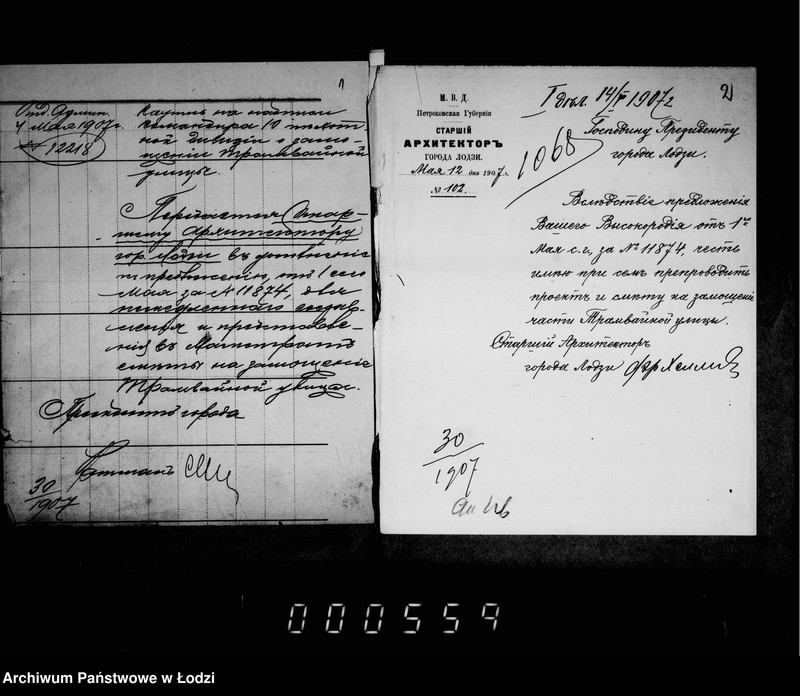 1
Отд. Админ.
4 Мая 1907 г.
№ 12218
на надписи
командира 10
дивизии о замо-
щении Трамвайной
улицы.
Передается Стар-
шему Архитектору
гор. Лодзи въ дополненіе
къ предложенію, отъ 1 сего
Мая за № 11874, для
и представле-
нія въ Магистратъ
смѣты на замощеніе
Трамвайной улицы.
Президентъ города
30
1907
2
I дѣл. 14/V 1907 г
М. В. Д.
Петроковская Губернія
СТАРШІЙ
АРХИТЕКТОРЪ
ГОРОДА ЛОДЗИ.
Мая 12 дня 1907 г.
№ 102.
1068
Господину Президенту
города Лодзи.
Вслѣдствіе предложенія
Вашего Высокородія отъ 1го
Мая с.г. за № 11874, честь
имѣю при семъ препроводить
проектъ и смѣту на замощеніе
части Трамвайной улицы.
Старшій Архитекторъ
города Лодзи
30
1907
000559
Archiwum Państwowe w Łodzi